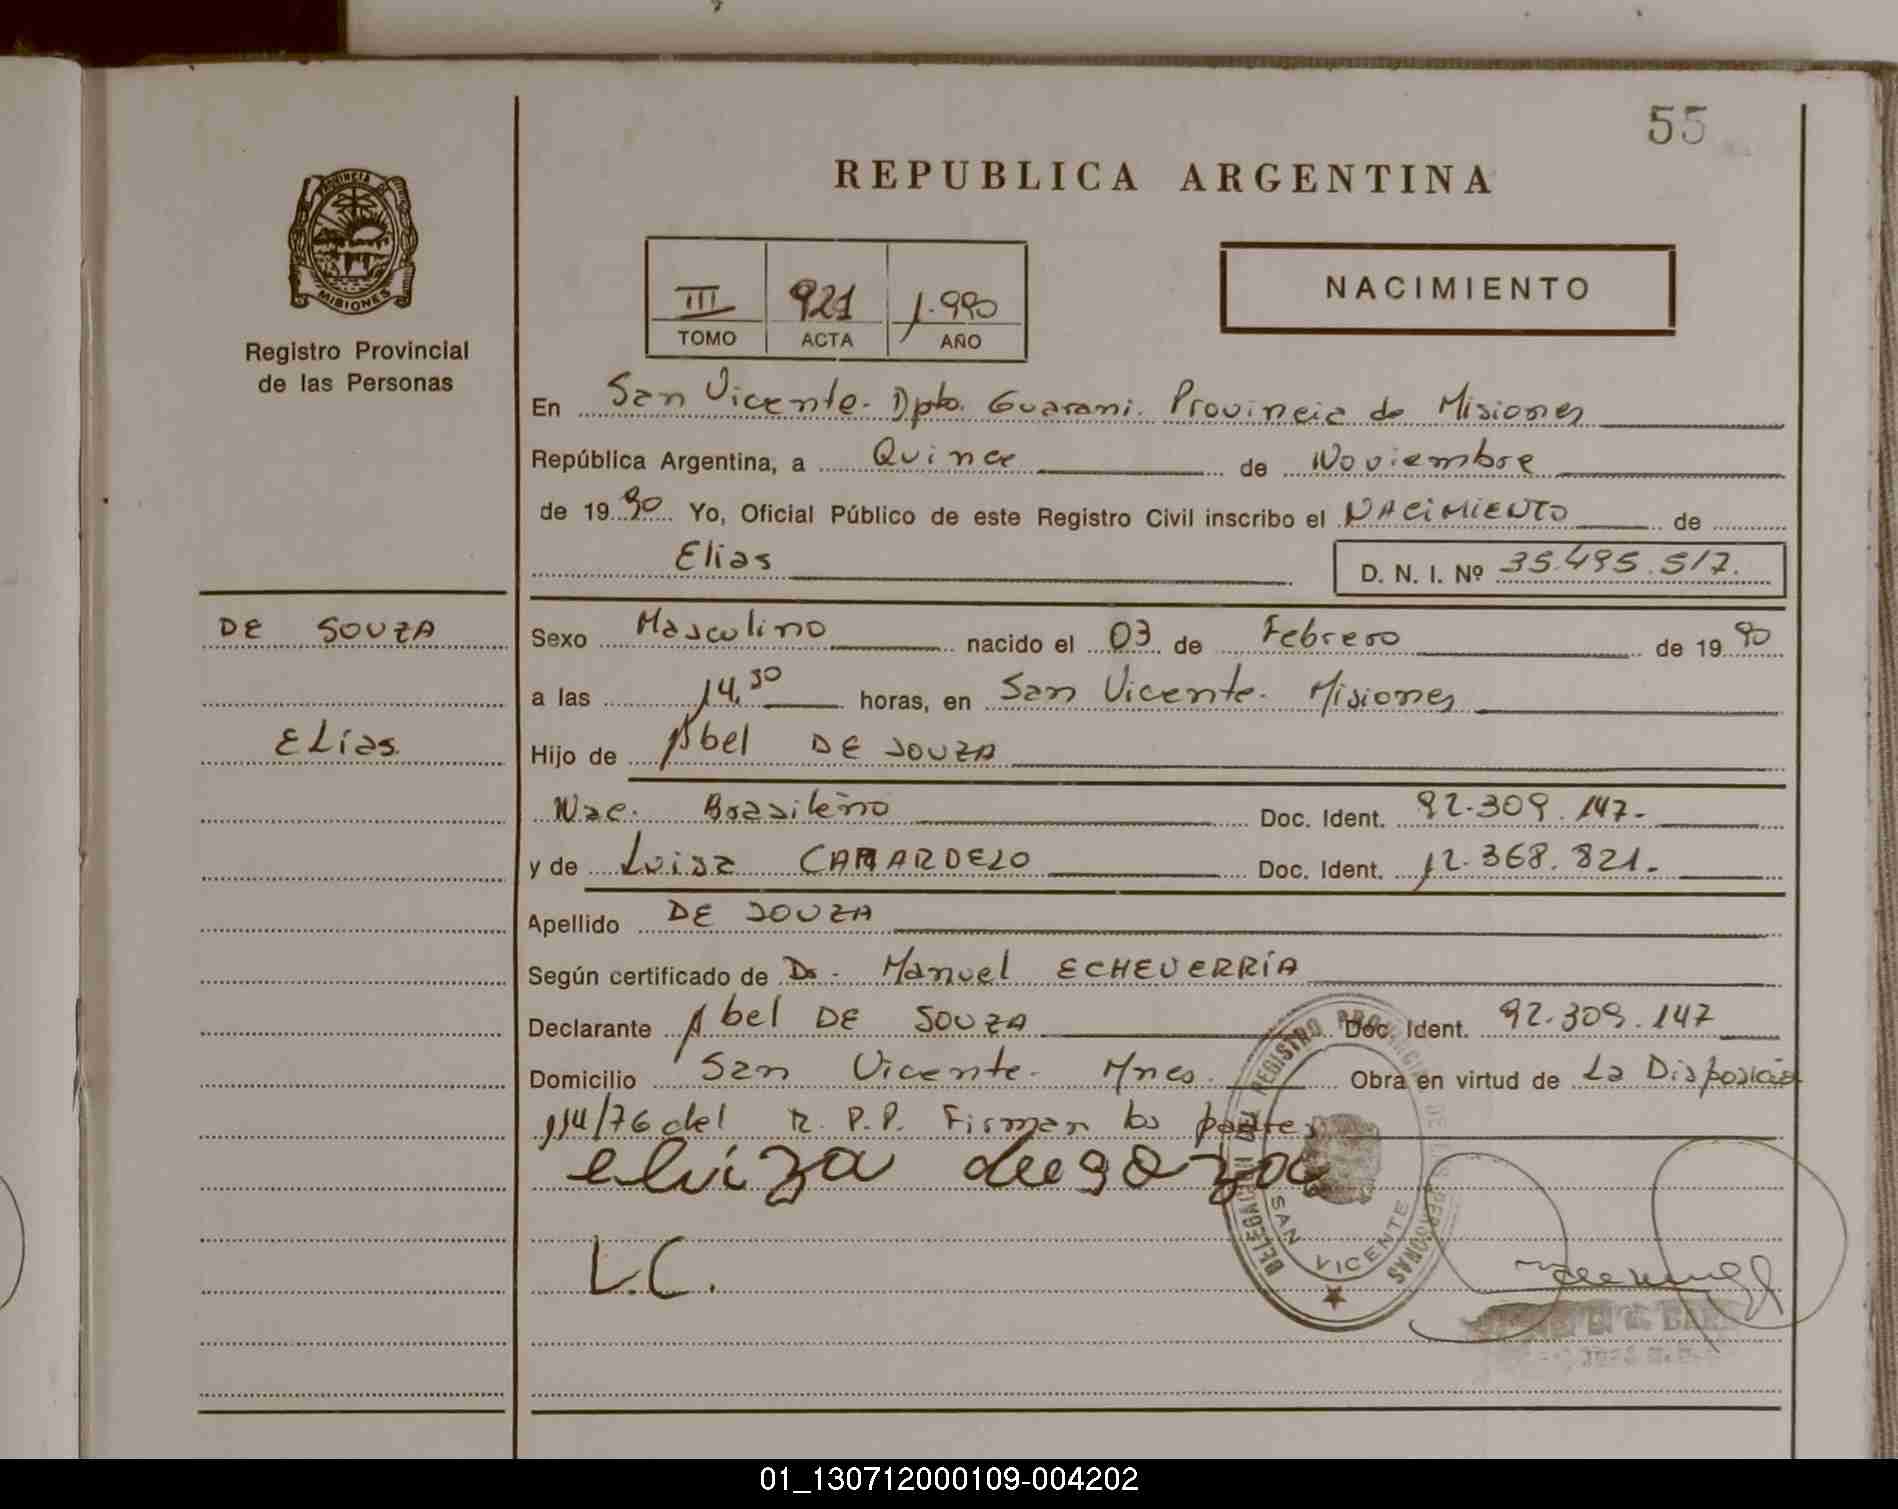 55
REPUBLICA ARGENTINA
PROVINCIA DE
MISIONES
Registro Provincial
de las Personas
III 921 1.990
TOMO ACTA AÑO
NACIMIENTO
En San Vicente. Dpto. Guarani. Provincia de Misiones
República Argentina, a Quince de Noviembre
de 1990 Yo, Oficial Público de este Registro Civil inscribo el NACIMIENTO de
Elias D. N. I. Nº 35.495.517.
DE SOUZA
Elías
Sexo Masculino nacido el 03 de Febrero de 1990
a las 14,30 horas, en San Vicente. Misiones
Hijo de Abel DE SOUZA
Nac. Brasileño Doc. Ident. 92.309.147.-
y de Luisa CAMARDELO Doc. Ident. 12.368.821.-
Apellido DE SOUZA
Según certificado de Dr. Manuel ECHEVERRÍA
Declarante Abel DE SOUZA Doc. Ident. 92.309.147
Domicilio San Vicente. Mnes. Obra en virtud de La Disposición
114/76 del R.P.P. Firman los padres
L.C.
DELEGACION DEL REGISTRO PROVINCIAL DE LAS PERSONAS
SAN VICENTE
01_130712000109-004202